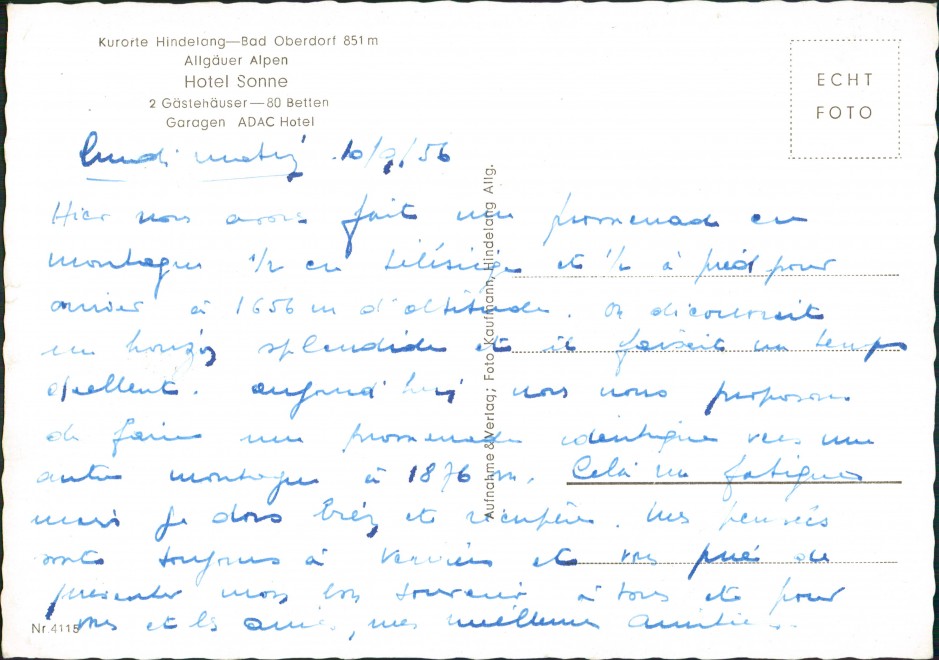 Kurorte Hindelang—Bad Oberdorf 851 m
Allgäuer Alpen
Hotel Sonne
2 Gästehäuser—80 Betten
Garagen ADAC Hotel
ECHT
FOTO
lundi matin 10/9/56
Hier nous avons fait une promenade en
montagne 1/2 en télésiège et 1/2 à pied pour
arriver à 1656 m d'altitude. On découvrait
un horizon splendide et il faisait un temps
excellent. aujourd'hui nous nous proposons
de faire une promenade identique vers une
autre montagne à 1876 m. Celà me fatigue
mais je dors bien et récupère. Mes pensées
sont toujours à Verviers et vous prie de
présenter mon bon souvenir à tous et pour
vous et les amis, mes meilleures amitiés.
Aufnahme & Verlag; Foto Kaufmann, Hindelang Allg.
Nr. 4115